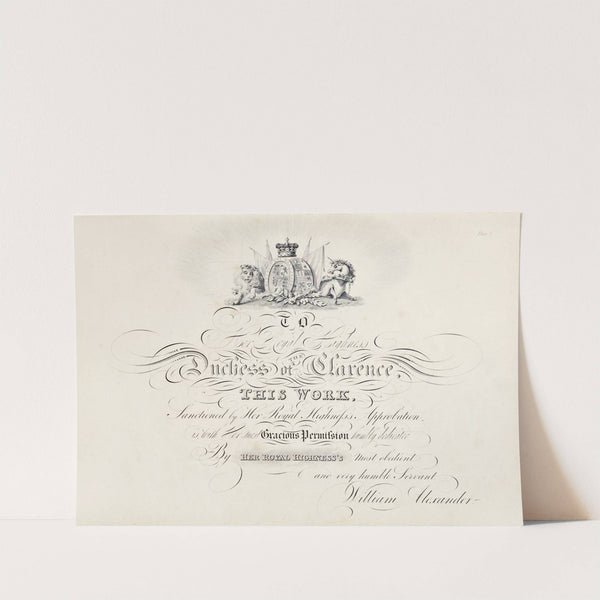 TO
Her Royal Highness
THE
Duchess of Clarence,
THIS WORK,
Sanctioned by Her Royal Highness's Approbation,
is with Her most Gracious Permiſsion humbly dedicated
By HER ROYAL HIGHNESS'S Most obedient
and very humble Servant
William Alexander